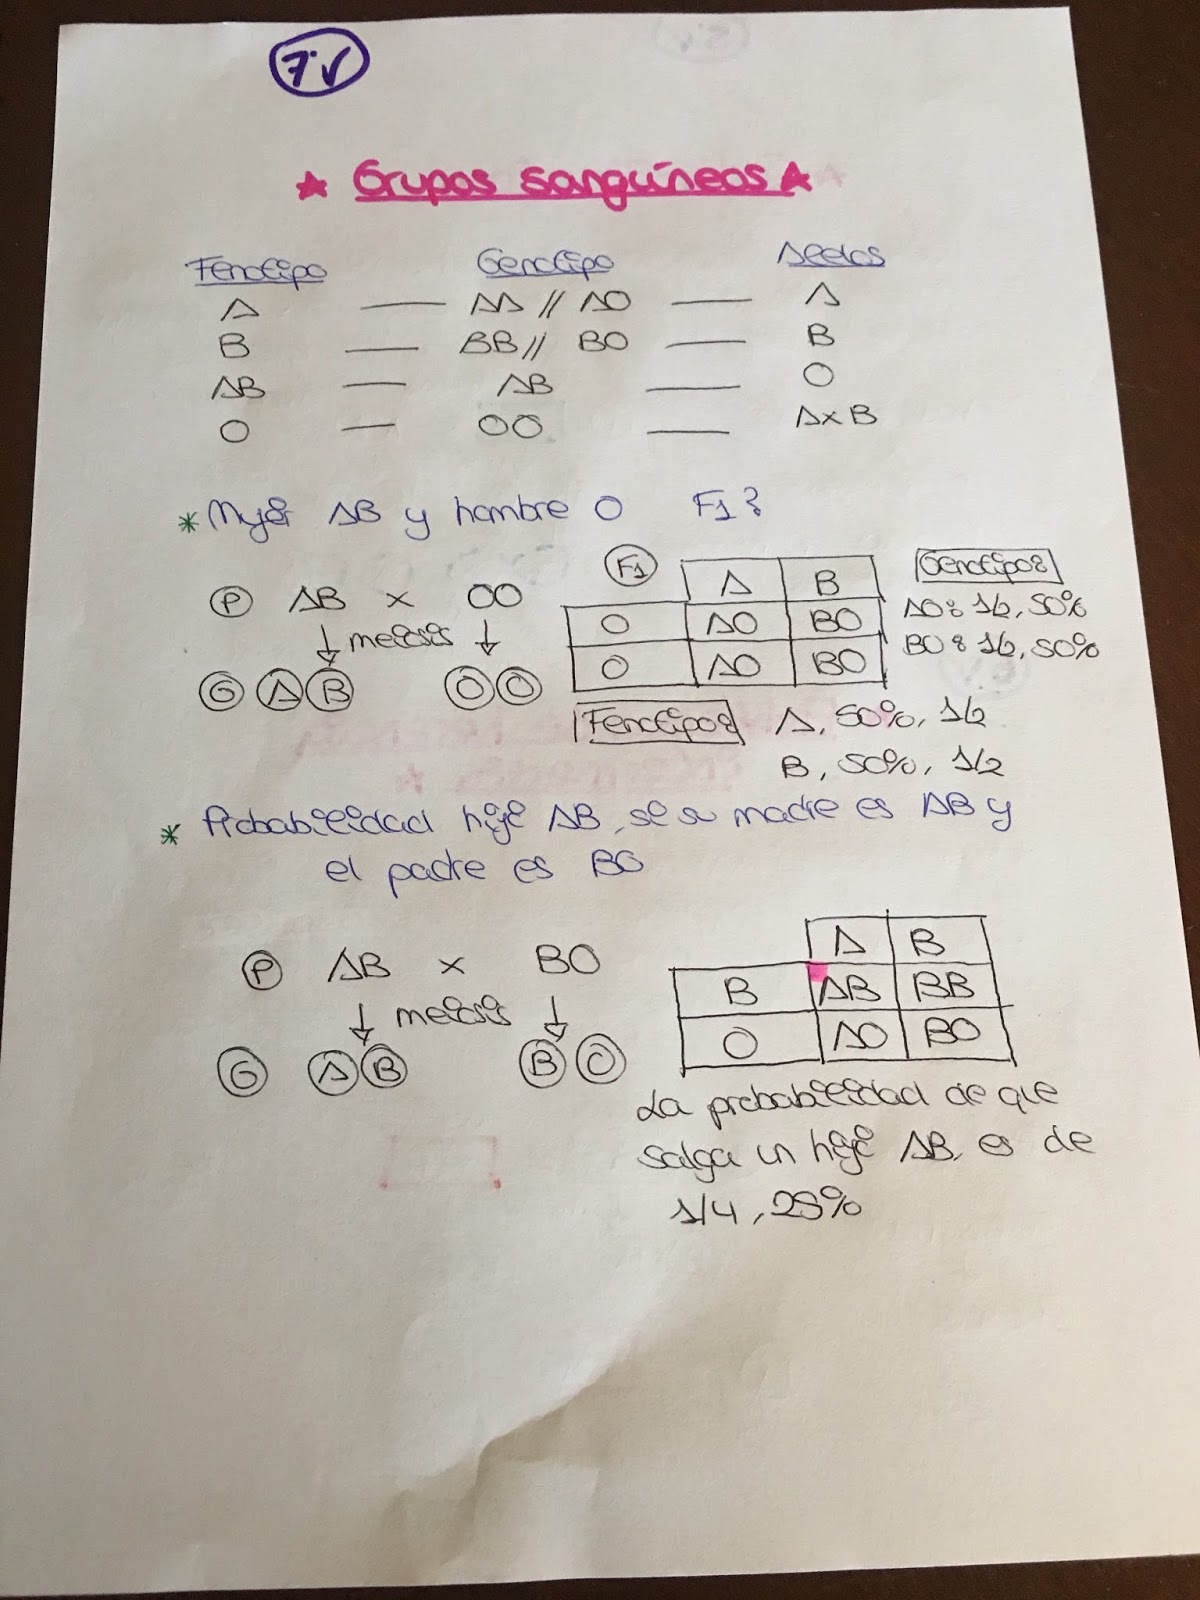 7.V
★ Grupos sanguíneos ★
Fenotipo Genotipo Alelos
A — AA // AO — A
B — BB // BO — B
AB — AB — O
O — OO — AxB
* Mujer AB y hombre O F1?
P AB x OO
↓ meiosis ↓
G A B O O
F1 A B
O AO BO
O AO BO
Genotipo:
AO: 1/2, 50%
BO: 1/2, 50%
Fenotipo: A, 50%, 1/2
B, 50%, 1/2
* Probabilidad hijo AB, si su madre es AB y
el padre es BO
P AB x BO
↓ meiosis ↓
G A B B O
A B
B AB BB
O AO BO
La probabilidad de que
salga un hijo AB, es de
1/4, 25%